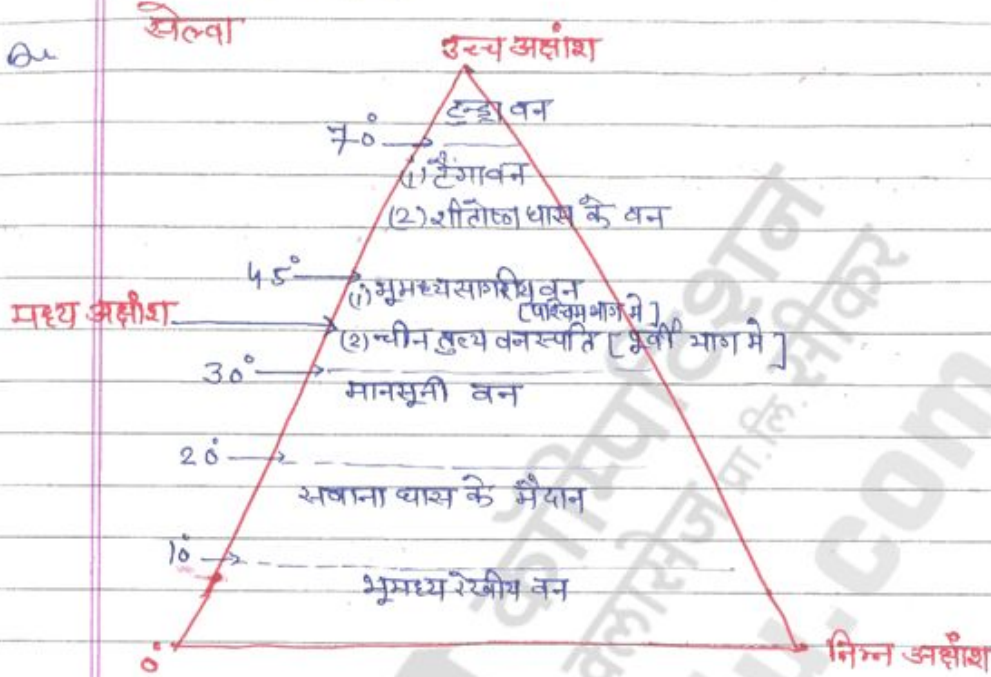 सेल्वा
उच्च अक्षांश
टुन्ड्रा वन
70°
(1) टैगा वन
(2) शीतोष्ण घास के वन
45°
(1) भूमध्यसागरीय वन
[पश्चिम भाग मे]
मध्य अक्षांश
(2) चीन तुल्य वनस्पति [पूर्वी भाग मे]
30°
मानसूनी वन
20°
सवाना घास के मैदान
10°
भूमध्य रेखीय वन
0°
निम्न अक्षांश
कॉम्पिटिशन
क्लासेज प्रा.लि. सीकर
.com